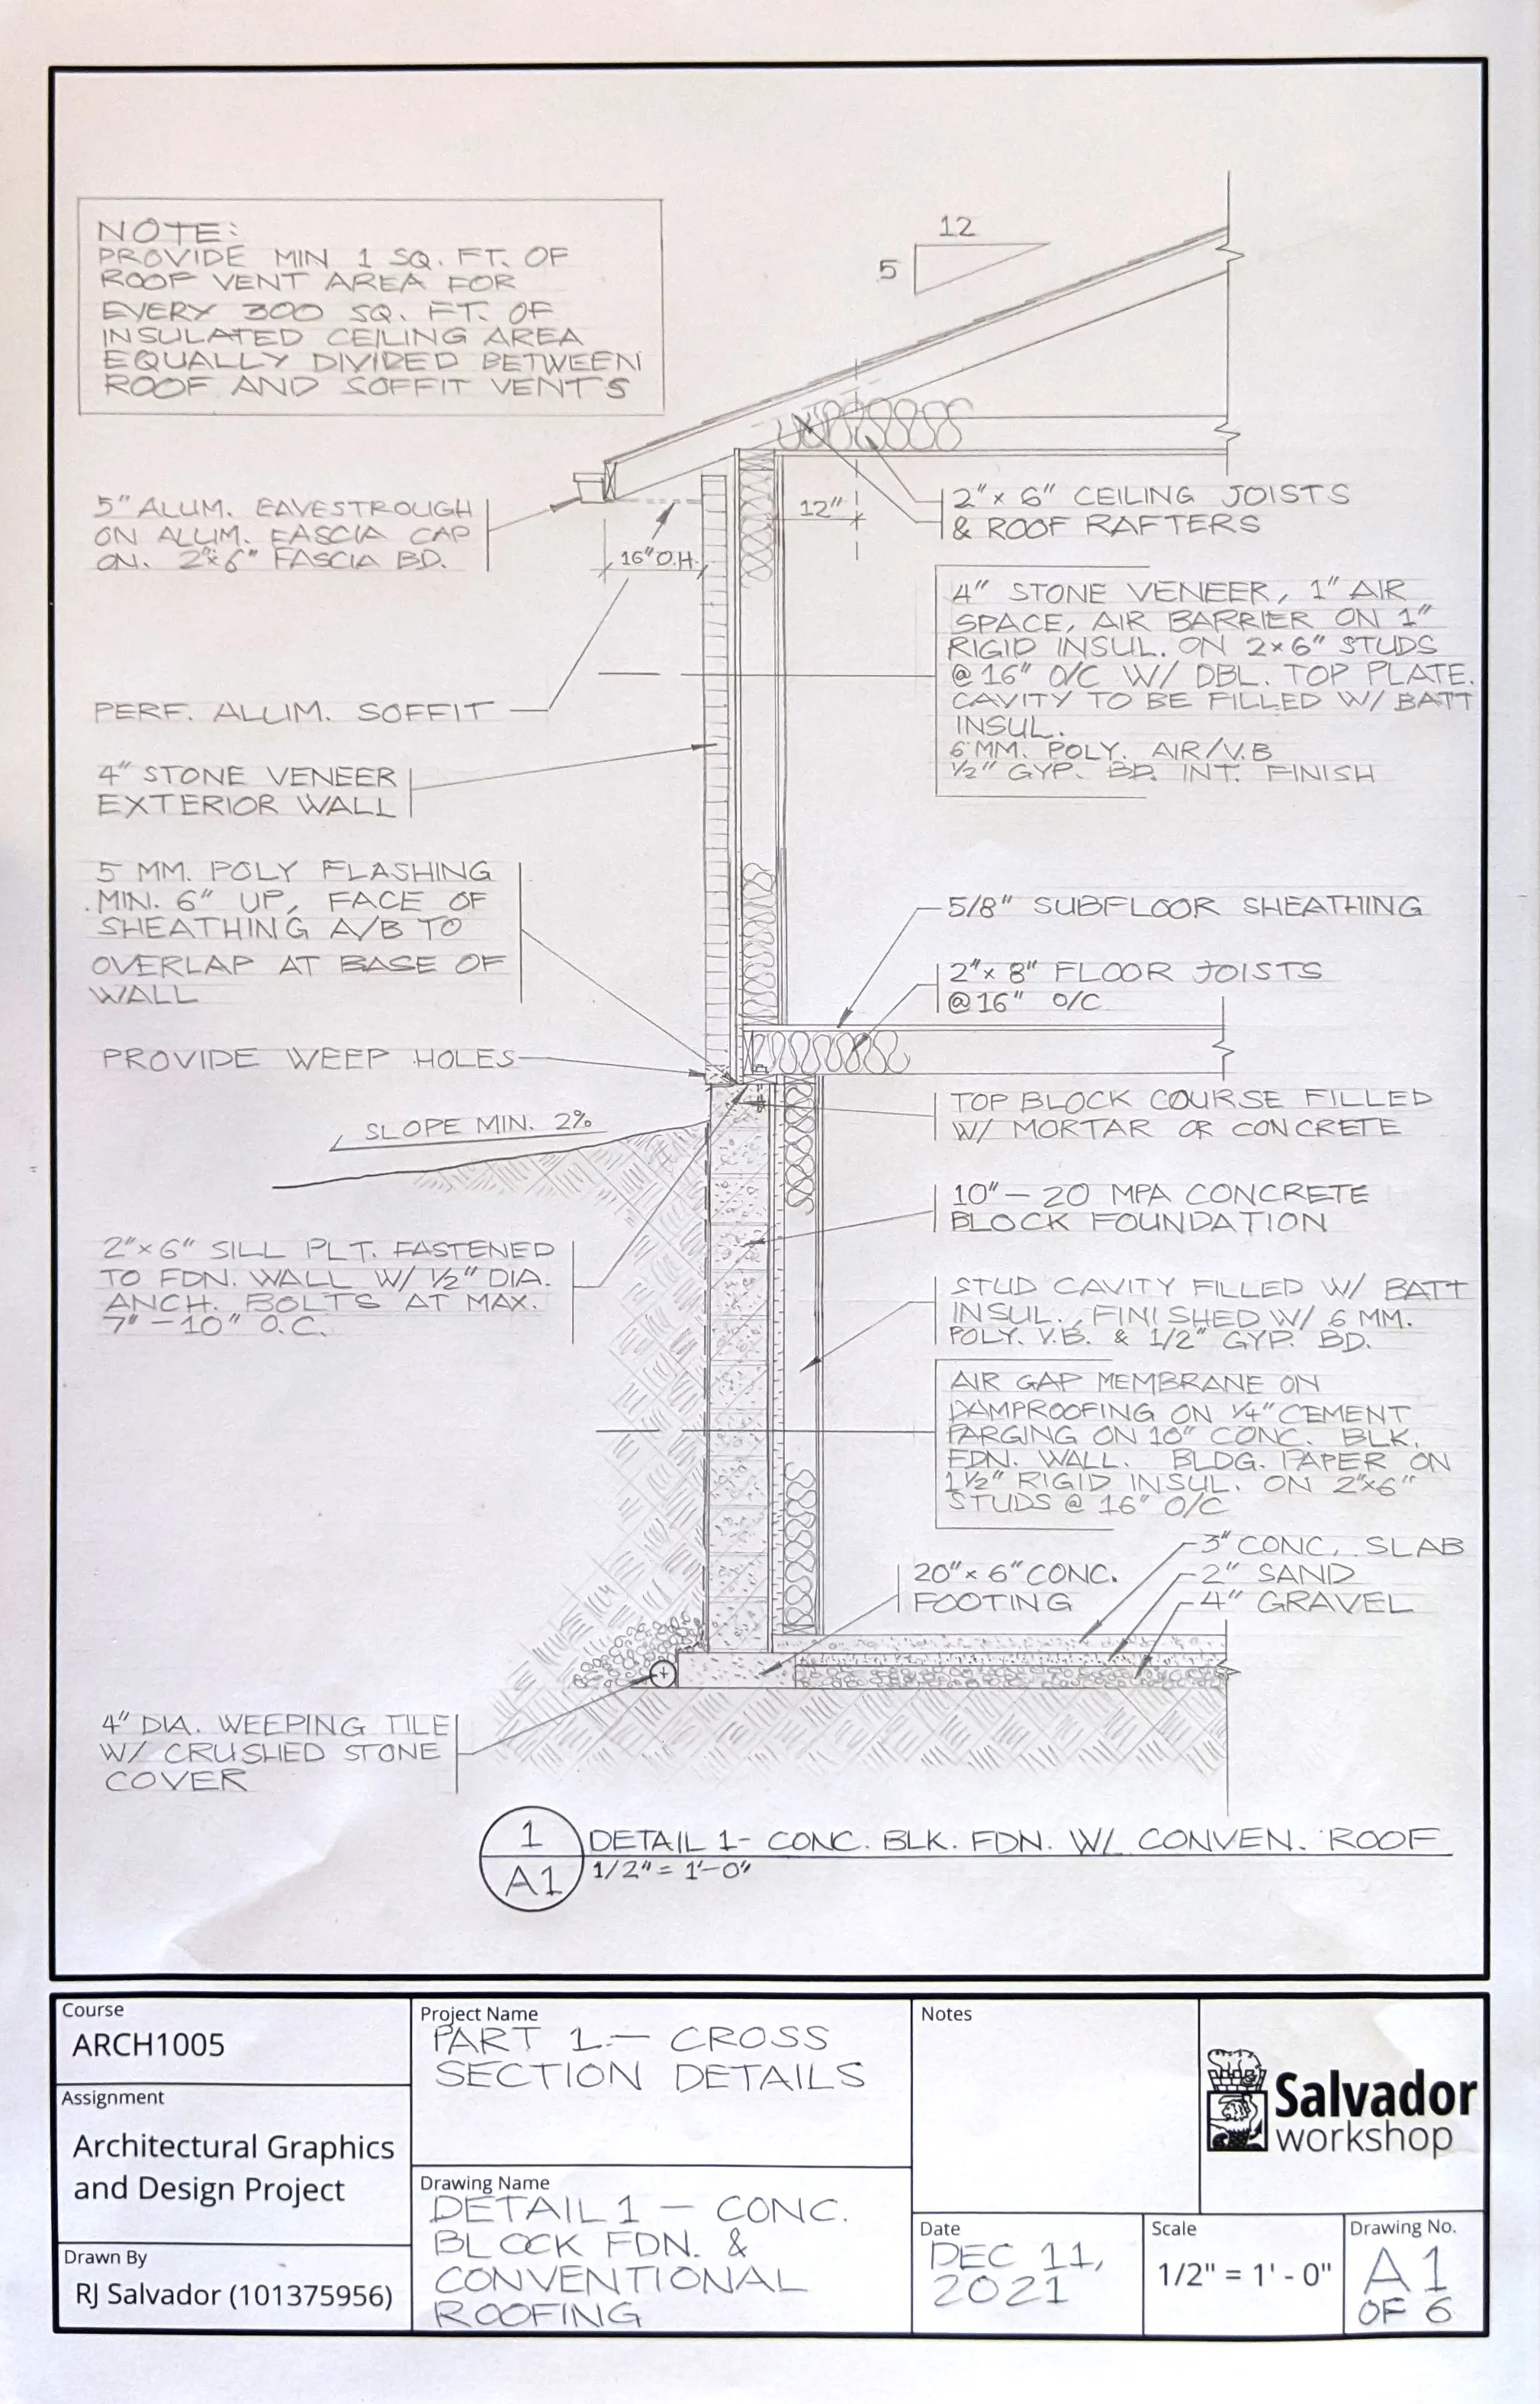 NOTE:
PROVIDE MIN 1 SQ. FT. OF
ROOF VENT AREA FOR
EVERY 300 SQ. FT. OF
INSULATED CEILING AREA
EQUALLY DIVIDED BETWEEN
ROOF AND SOFFIT VENTS
12
5
5" ALUM. EAVESTROUGH
ON ALUM. FASCIA CAP
ON. 2"x6" FASCIA BD.
16" O.H.
12"
2"x 6" CEILING JOISTS
& ROOF RAFTERS
4" STONE VENEER, 1" AIR
SPACE, AIR BARRIER ON 1"
RIGID INSUL. ON 2x6" STUDS
@ 16" O/C W/ DBL. TOP PLATE.
CAVITY TO BE FILLED W/ BATT
INSUL.
6 MM. POLY. AIR/V.B
1/2" GYP. BD. INT. FINISH
PERF. ALUM. SOFFIT
4" STONE VENEER
EXTERIOR WALL
5 MM. POLY FLASHING
MIN. 6" UP, FACE OF
SHEATHING A/B TO
OVERLAP AT BASE OF
WALL
5/8" SUBFLOOR SHEATHING
2"x 8" FLOOR JOISTS
@16" O/C
PROVIDE WEEP HOLES
SLOPE MIN. 2%
TOP BLOCK COURSE FILLED
W/ MORTAR OR CONCRETE
10" - 20 MPA CONCRETE
BLOCK FOUNDATION
2"x6" SILL PLT. FASTENED
TO FDN. WALL W/ 1/2" DIA.
ANCH. BOLTS AT MAX.
7" - 10" O.C.
STUD CAVITY FILLED W/ BATT
INSUL. FINISHED W/ 6 MM.
POLY. V.B. & 1/2" GYP. BD.
AIR GAP MEMBRANE ON
DAMPROOFING ON 1/4" CEMENT
PARGING ON 10" CONC. BLK.
FDN. WALL. BLDG. PAPER ON
1 1/2" RIGID INSUL. ON 2"x6"
STUDS @ 16" O/C
3" CONC. SLAB
2" SAND
4" GRAVEL
20"x 6" CONC.
FOOTING
4" DIA. WEEPING TILE
W/ CRUSHED STONE
COVER
1
A1
DETAIL 1- CONC. BLK. FDN. W/ CONVEN. ROOF
1/2" = 1'-0"
Course
ARCH1005
Assignment
Architectural Graphics
and Design Project
Drawn By
RJ Salvador (101375956)
Project Name
PART 1.- CROSS
SECTION DETAILS
Drawing Name
DETAIL 1 - CONC.
BLOCK FDN. &
CONVENTIONAL
ROOFING
Notes
Salvador
workshop
Date
DEC 11,
2021
Scale
1/2" = 1' - 0"
Drawing No.
A1
OF 6